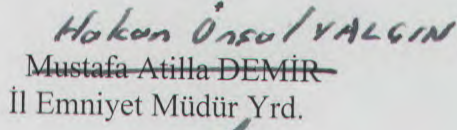 Hakan Ünsal YALÇIN
Mustafa Atilla DEMİR
İl Emniyet Müdür Yrd.